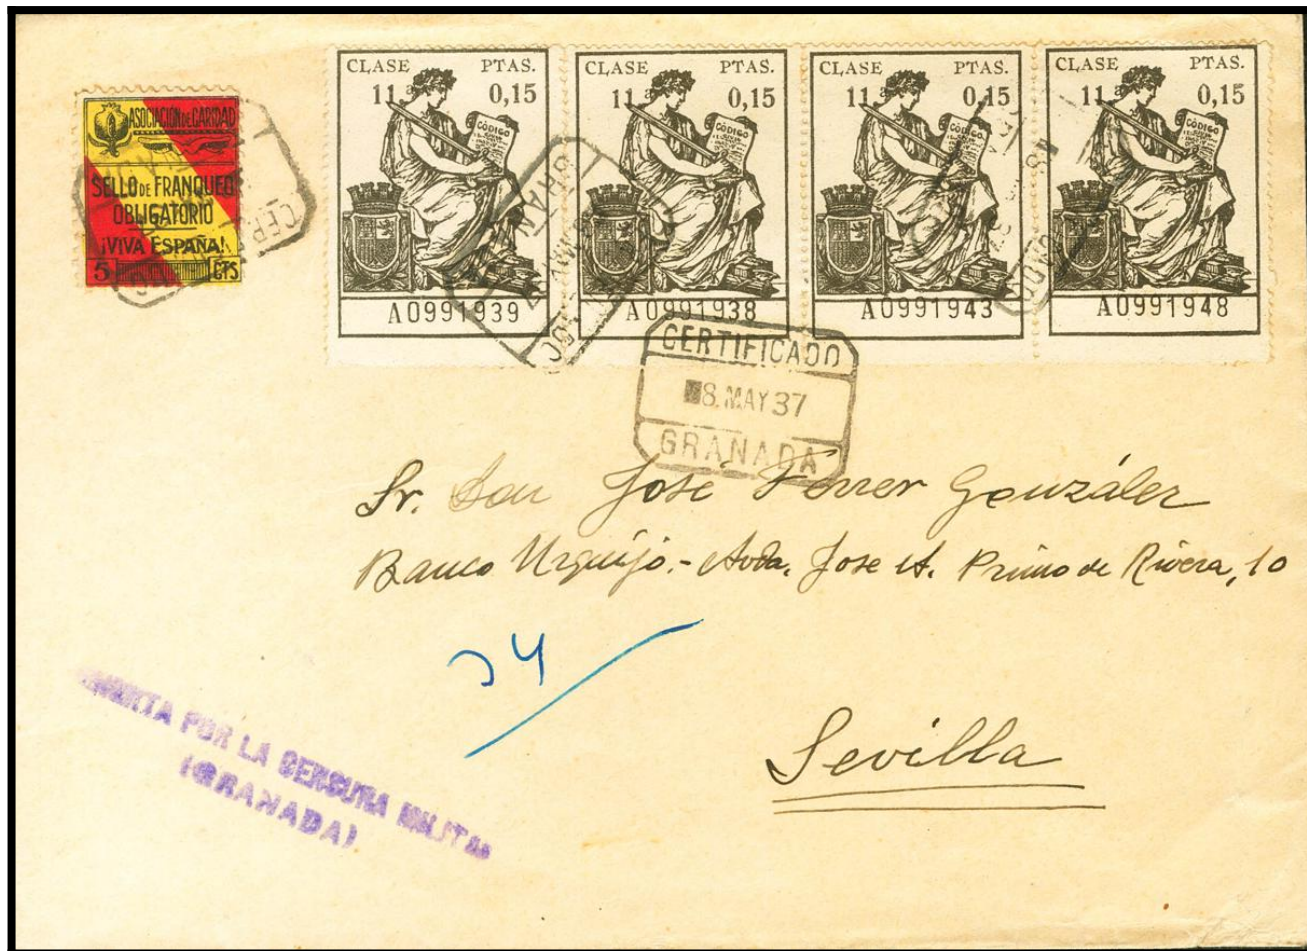 ASOCIACIÓN DE CARIDAD
SELLO DE FRANQUEO
OBLIGATORIO
¡VIVA ESPAÑA!
5 CTS
CLASE PTAS.
11ª 0,15
CÓDIGO
A0991939
CLASE PTAS.
11ª 0,15
CÓDIGO
A0991938
CLASE PTAS.
11ª 0,15
CÓDIGO
A0991943
CLASE PTAS.
11ª 0,15
CÓDIGO
A0991948
CERTIFICADO
8. MAY 37
GRANADA
Sr. Don José Ferrer González
Banco Urquijo.- Avda. Jose A. Primo de Rivera, 10
34
Sevilla
POR LA CENSURA MILITAR
(GRANADA)